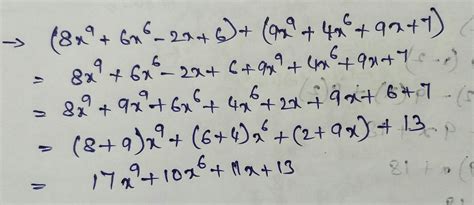 → (8x⁹ + 6x⁶ - 2x + 6) + (9x⁹ + 4x⁶ + 9x + 7)
= 8x⁹ + 6x⁶ - 2x + 6 + 9x⁹ + 4x⁶ + 9x + 7
= 8x⁹ + 9x⁹ + 6x⁶ + 4x⁶ + 2x + 9x + 6 + 7
= (8+9)x⁹ + (6+4)x⁶ + (2+9x) + 13
= 17x⁹ + 10x⁶ + 11x + 13